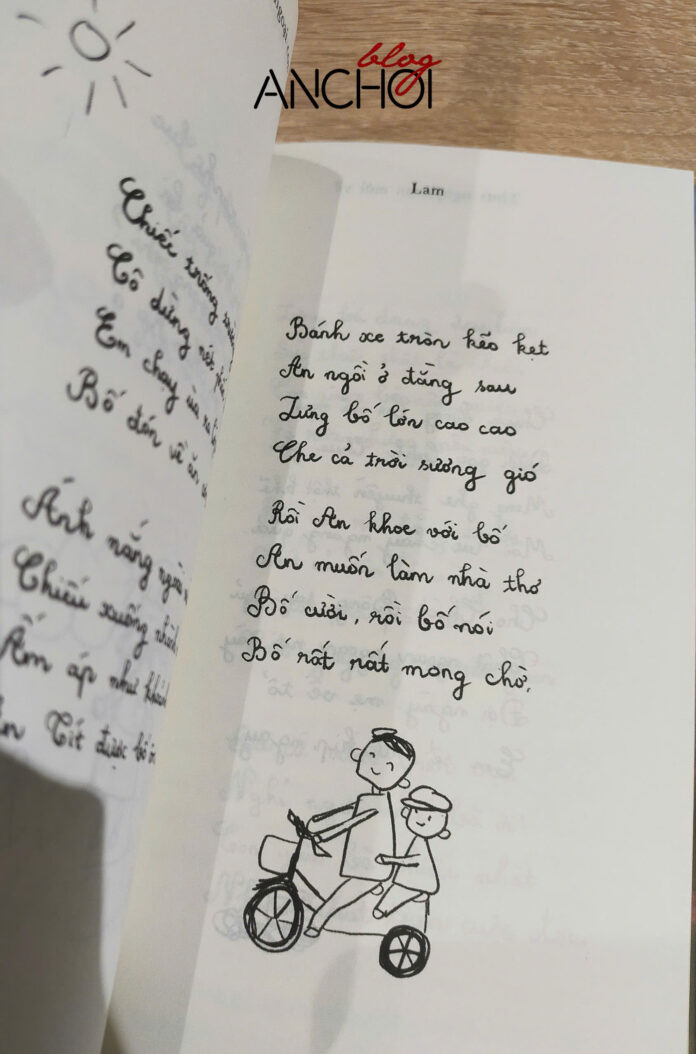 blog
ANCHOI
Chiếc trống
Cô dừng nét
Em chạy ùa ra
Bố đón về ăn
Ánh nắng ngoài
Chiếu xuống
Ấm áp như
Tít được bố
Lam
Bánh xe tròn kẽo kẹt
An ngồi ở đằng sau
Lưng bố lớn cao cao
Che cả trời sương gió
Rồi An khoe với bố
An muốn làm nhà thơ
Bố cười, rồi bố nói
Bố rất rất mong chờ.